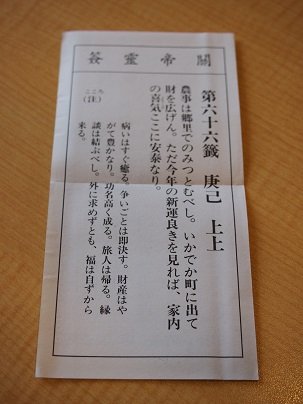 關帝靈籤
第六十六籤　庚己　上上
農事は郷里でのみつとむべし。いかでか町に出て
財を広げん。ただ今年の新運良きを見れば、家内
の喜気ここに安泰なり。
こころ
（註）
病いはすぐ癒る。争いごとは即決す。財産はや
がて豊かなり。功名高く成る。旅人は帰る。縁
談は結ぶべし。外に求めずとも、福は自ずから
来る。